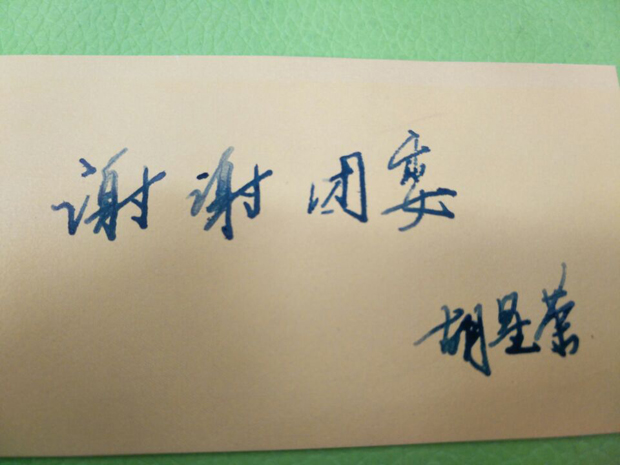 谢谢团宴
胡星荣